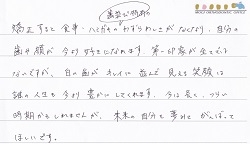 歯並びや時間の
矯正すると食事・ハミガキのわずらわしさがなくなり、自分の
歯や顔が今より好きになれます。第一印象が全てでは
ないですが、白い歯がキレイに並んで見える笑顔は
誰の人生も今より豊かにしてくれます。今は長く、つらい
時期かもしれませんが、未来の自分を夢みてがんばって
ほしいです。